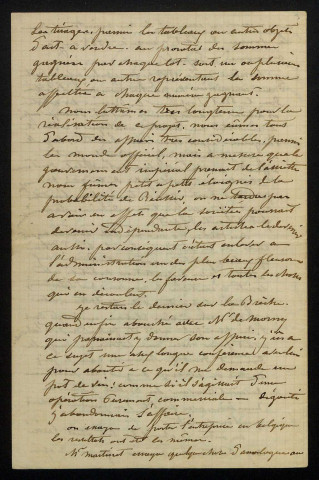 les tirages, parmi les tableaux ou autres objets
d'art à vendre, au prorata des somme
gagnées par chaque lot. soit un ou plusieurs
tableaux ou autre représentant la somme
affectée à chaque numéro gagnant.
nous luttâmes très longtems pour la
réalisation de ce projet, nous eûmes tous
d'abord des appuis très considérables, parmi
le monde officiel, mais à mesure que le
gouvernement impérial prenait de l'assiette
nous fumes petit a petit éloignés de la
probabilité de Réussir, on ne tarda pas
a voir en effet que la société pouvait
devenir indépendante, les artistes le devenir
aussi. par conséquent c'était enlever à
l'administration un des plus beaux fleurons
de sa couronne, la faveur et toutes les choses
qui en découlent.
Je restais le dernier sur la Brèche.
quand enfin abouché avec Mr de Morny
qui paraissait y donner son appui, j'eus a
ce sujet une assez longue conférence
pour aboutir a ce qu'il me demanda un
pot de vin; comme s'il s'agissait d'une
opération purement commerciale — dégoûté
j'abandonnais l'affaire.
on essaya de porter l'entreprise en Belgique
les resultats ont été les mêmes.
Mr Martinet essaya quelque chose d'analogue au